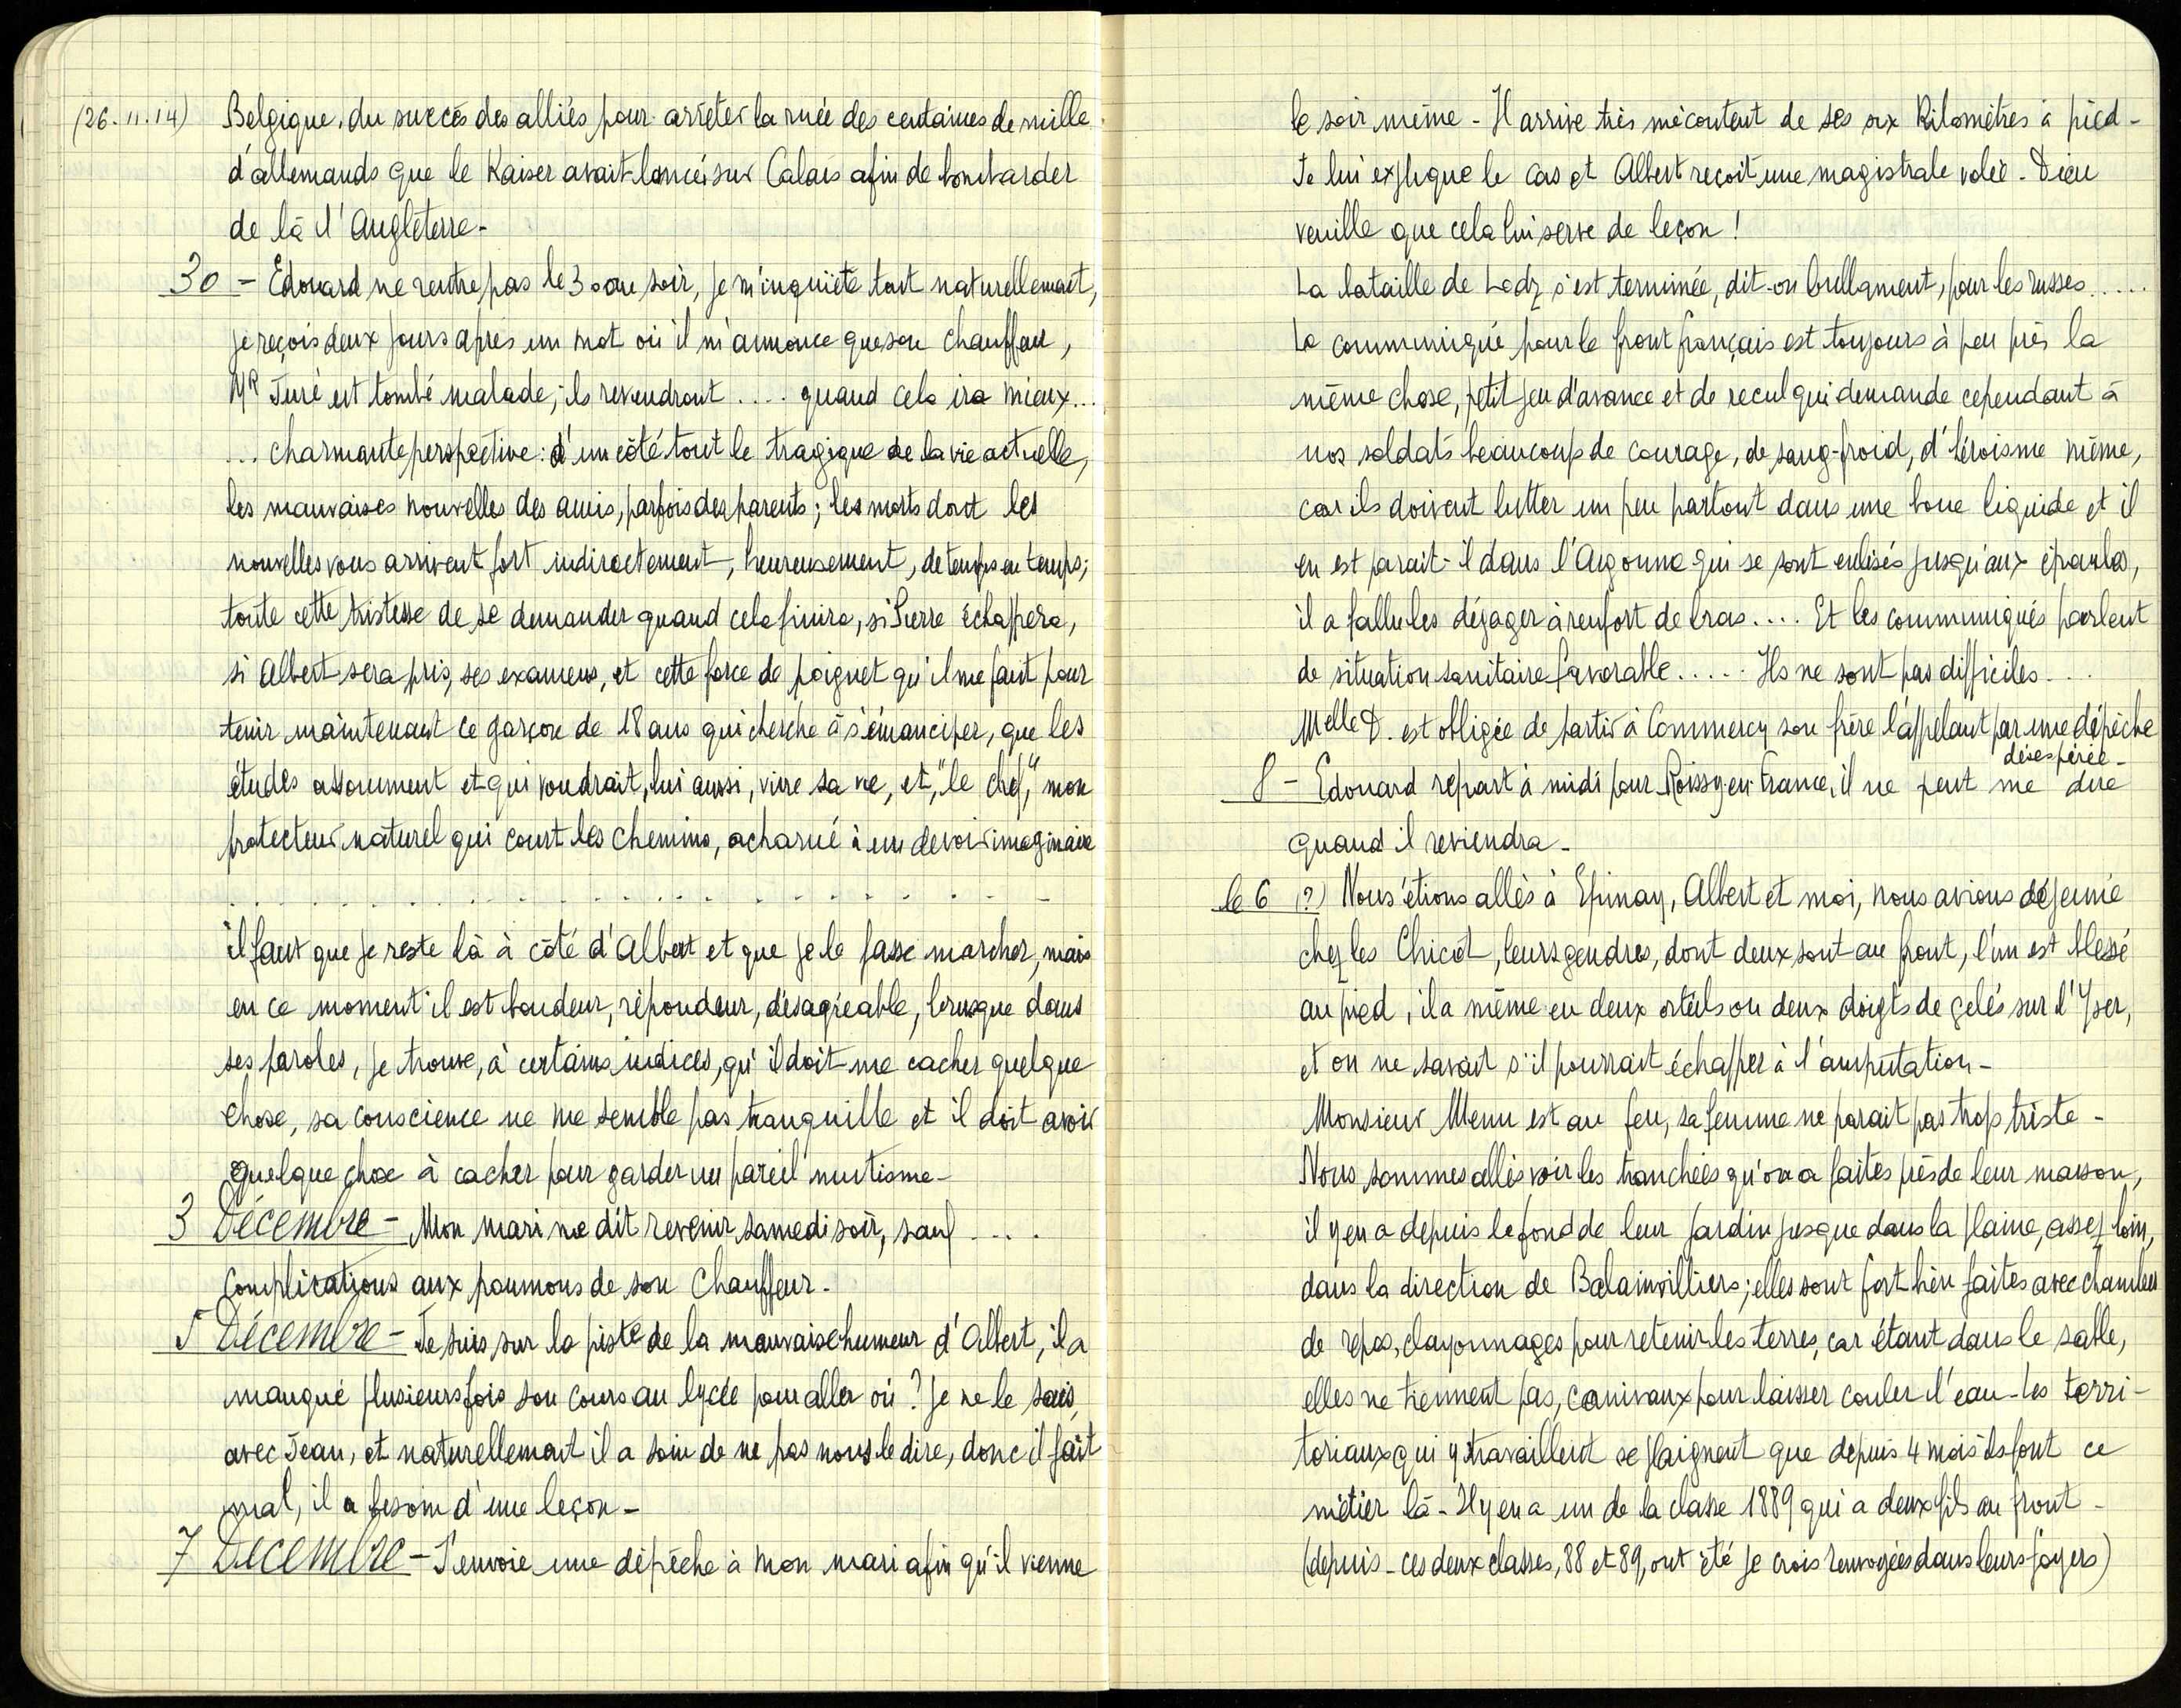 (26.11.14) Belgique, du succès des alliés pour arrêter la ruée des centaines de mille
d'allemands que le Kaiser avait lancés sur Calais afin de bombarder
de là l'Angleterre-
30 - Edouard ne rentre pas le 30 au soir, je m'inquiète tout naturellement,
je reçois deux jours après un mot où il m'annonce que son chauffeur,
Mr Juré est tombé malade; ils reviendront .... quand cela ira mieux...
... charmante perspective: d'un côté tout le tragique de la vie actuelle,
les mauvaises nouvelles des amis, parfois des parents; les morts dont les
nouvelles vous arrivent fort indirectement, heureusement, de temps en temps;
toute cette tristesse de se demander quand cela finira, si Pierre échappera,
si Albert sera pris, ses examens, et cette force de poignet qu'il me faut pour
tenir maintenant ce garçon de 18 ans qui cherche à s'émanciper, que les
études assomment et qui voudrait, lui aussi, vivre sa vie, et, "le chef," mon
protecteur naturel qui court les chemins, acharné à un devoir imaginaire
. . . . . . . . . . . . . . . . . . -
il faut que je reste là à côté d'Albert et que je le fasse marcher, mais
en ce moment il est boudeur, répondeur, désagréable, brusque dans
ses paroles, je trouve, à certains indices, qu'il doit me cacher quelque
chose, sa conscience ne me semble pas tranquille et il doit avoir
quelque chose à cacher pour garder un pareil mutisme-
3 Décembre - Mon mari me dit revenir samedi soir, sauf ....
complications aux poumons de son chauffeur.
5 Décembre - Je suis sur la piste de la mauvaise humeur d'Albert, il a
manqué plusieurs fois son cours au lycée pour aller où? je ne le sais,
avec Jean, et naturellement il a soin de ne pas nous le dire, donc il fait
mal, il a besoin d'une leçon-
7 Décembre - J'envoie une dépêche à mon mari afin qu'il vienne
le soir même - Il arrive très mécontent de ses six Kilomètres à pied -
Je lui explique le cas et Albert reçoit une magistrale volée. Dieu
veuille que cela lui serve de leçon!
La bataille de Lodz s'est terminée, dit-on brillament, pour les russes.....
Le communiqué pour le front français est toujours à peu près la
même chose, petit jeu d'avance et de recul qui demande cependant à
nos soldats beaucoup de courage, de sang-froid, d'héroïsme même,
car ils doivent lutter un peu partout dans une boue liquide et il
en est parait-il dans l'Argonne qui se sont enlisés jusqu'aux épaules,
il a fallu les dégager à renfort de bras.... Et les communiqués parlent
de situation sanitaire favorable..... Ils ne sont pas difficiles...
Melle D. est obligée de partir à Commercy son frère l'appelant par une dépêche
désespérée-
8 - Edouard repart à midi pour Roissy-en-France, il ne peut me dire
quand il reviendra-
le 6 (?) Nous étions allés à Epinay, Albert et moi, nous avions déjeuné
chez les Chicot, leurs gendres, dont deux sont au front, l'un est blessé
au pied, il a même eu deux orteils ou deux doigts de gelés sur l'Yser,
et on ne savait s'il pourrait échapper à l'amputation-
Monsieur Menu est au feu, sa femme ne parait pas trop triste-
Nous sommes allés voir les tranchées qu'on a faites près de leur maison,
il y en a depuis le fond de leur jardin jusque dans la plaine, assez loin,
dans la direction de Balainvilliers; elles sont fort bien faites avec chambres
de repos, clayonnages pour retenir les terres, car étant dans le sable,
elles ne tiennent pas, caniveaux pour laisser couler l'eau - Les terri-
toriaux qui y travaillent se plaignent que depuis 4 mois ils font ce
métier là - Il y en a un de la classe 1889 qui a deux fils au front-
(depuis - ces deux classes, 88 et 89, ont été je crois renvoyées dans leurs foyers)